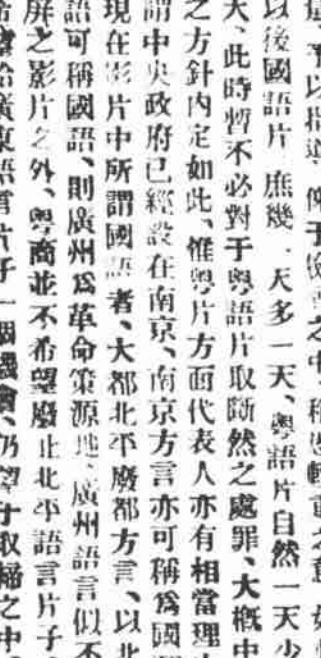 予以指導、
以後國語片、庶幾一天多一天、粵語片自然一天少
大、此時暫不必對于粵語片取斷然之處罪、大概中
之方針内定如此、惟粵片方面代表人亦有相當理
謂中央政府已經設在南京、南京方言亦可稱爲國
現在影片中所謂國語者、大都北平廢都方言、以北
語可稱國語、則廣州爲革命策源地、廣州語言似不
屏之影片之外、粵商並不希望廢止北平語言片子、
給廣東語言片子一個機會、仍望于取締之中、